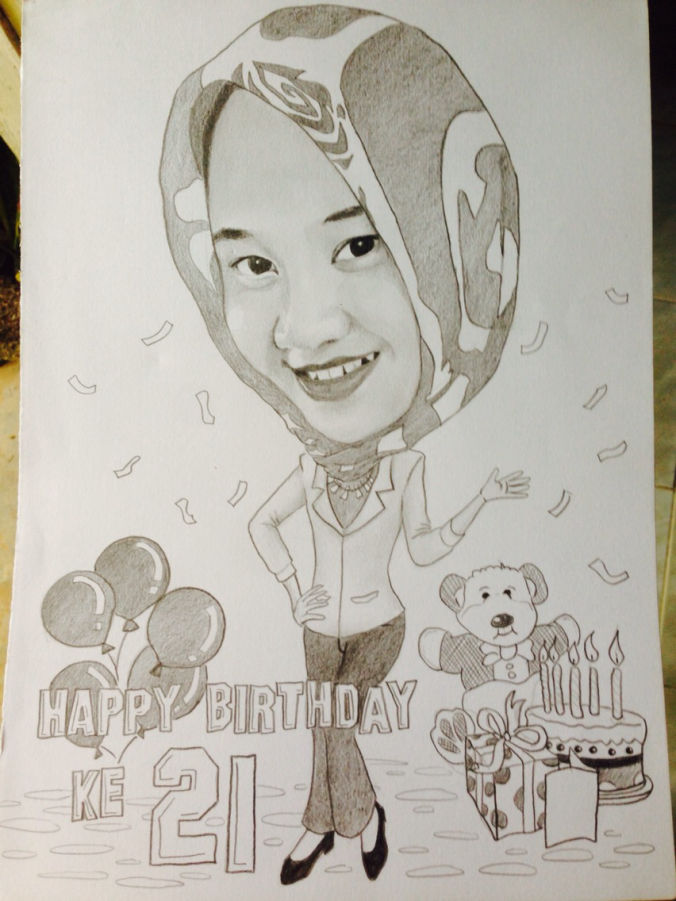 HAPPY BIRTHDAY
KE 21